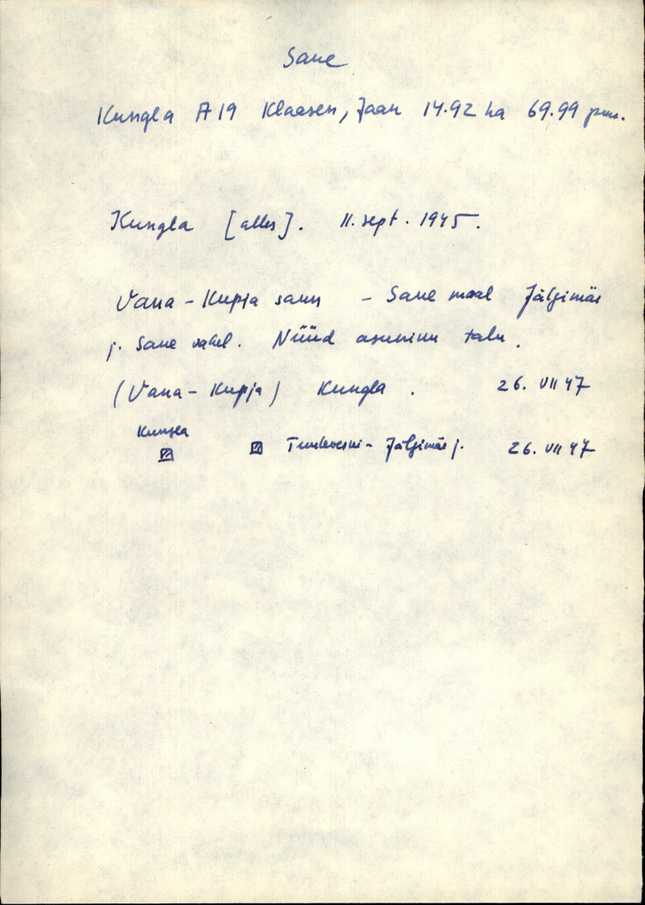 Saue
Kungla A 19 Klaasen, Jaan 14.92 ha 69.99
Kungla [alles]. 11. sept. 1945.
Vana-Kupja saun - Saue maal Jälgimäe
j. Saue vahel. Nüüd asuniku talu.
(Vana-Kupja) Kungla. 26. VII 47
Kungla
Jälgimäe j. 26. VII 47